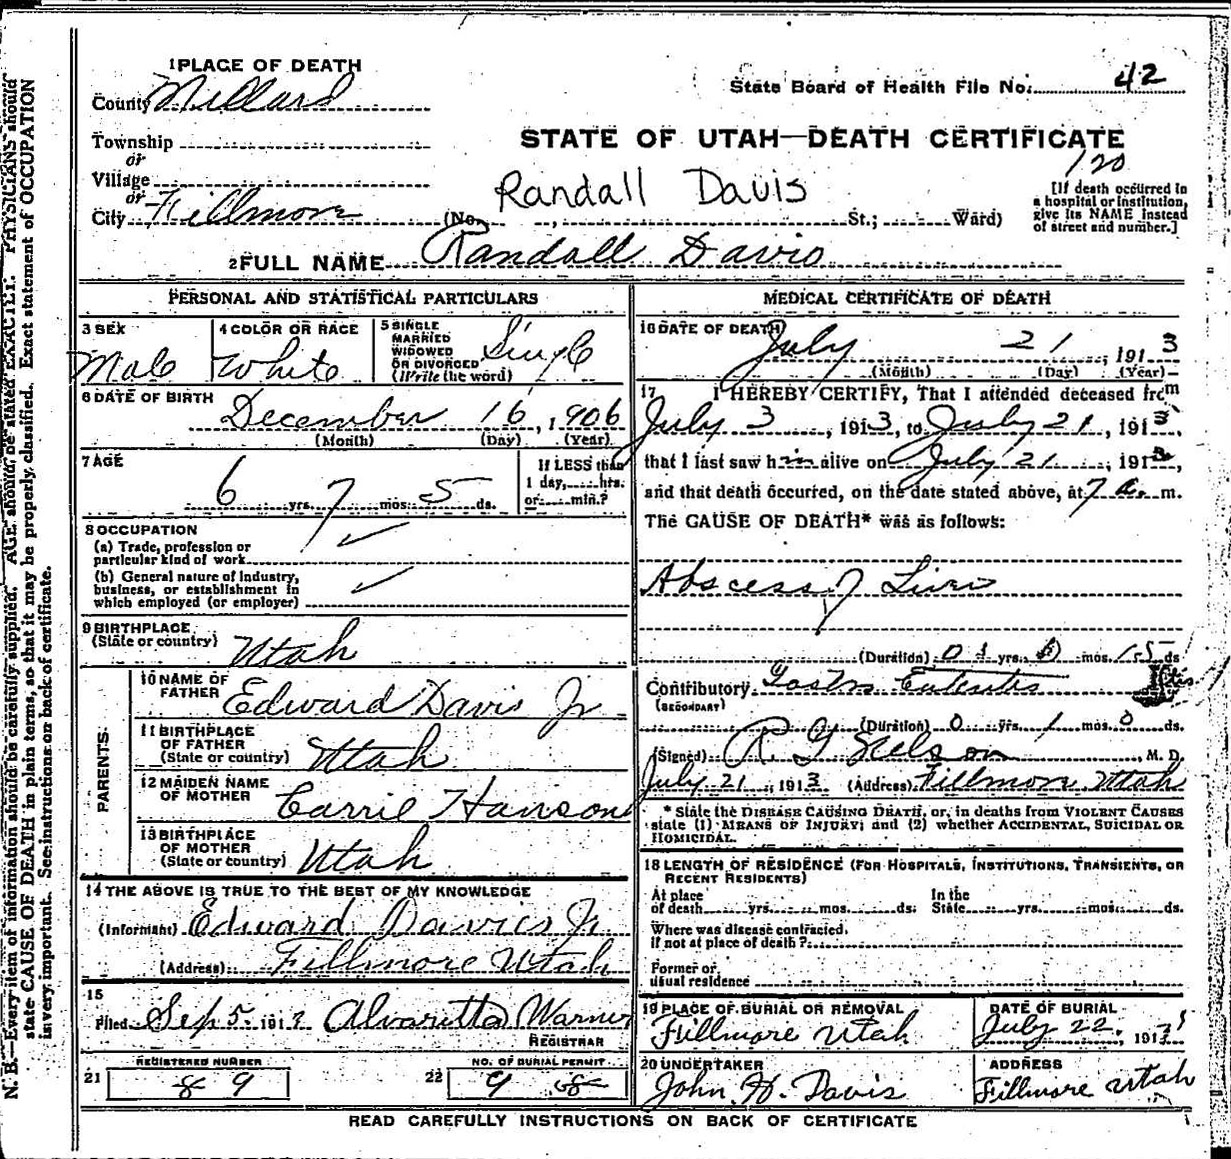 1 PLACE OF DEATH
County Millard
State Board of Health File No. 42
Township
or
Village
or
City Fillmore
STATE OF UTAH—DEATH CERTIFICATE
120
Randall Davis
(No. , St.; Ward)
[If death occurred in
a hospital or institution,
give its NAME instead
of street and number.]
2 FULL NAME Randall Davis
PERSONAL AND STATISTICAL PARTICULARS
3 SEX
Male
4 COLOR OR RACE
White
5 SINGLE
MARRIED
WIDOWED
OR DIVORCED
(Write the word)
Single
6 DATE OF BIRTH
December 16, 1906
(Month) (Day) (Year)
7 AGE
6 yrs. 7 mos. 5 ds.
If LESS than
1 day, hrs.
or min.?
8 OCCUPATION
(a) Trade, profession or
particular kind of work
(b) General nature of industry,
business, or establishment in
which employed (or employer)
9 BIRTHPLACE
(State or country) Utah
PARENTS
10 NAME OF
FATHER Edward Davis Jr
11 BIRTHPLACE
OF FATHER
(State or country) Utah
12 MAIDEN NAME
OF MOTHER Carrie Hanson
13 BIRTHPLACE
OF MOTHER
(State or country) Utah
14 THE ABOVE IS TRUE TO THE BEST OF MY KNOWLEDGE
(Informant) Edward Davies Jr
(Address) Fillmore Utah
15
Filed Sep 5. 1913 Alvaretta Warner
REGISTRAR
REGISTERED NUMBER
21 89
NO. OF BURIAL PERMIT
22 9
MEDICAL CERTIFICATE OF DEATH
16 DATE OF DEATH
July 21, 1913
(Month) (Day) (Year)
17 I HEREBY CERTIFY, That I attended deceased from
July 3, 1913, to July 21, 1913,
that I last saw him alive on July 21, 1913,
and that death occurred, on the date stated above, at 7 a. m.
The CAUSE OF DEATH* was as follows:
Abscess of Liver
(Duration) 0 yrs. 0 mos. 15 ds
Contributory Gastro Enteritis
(SECONDARY)
(Duration) 0 yrs. 1 mos. 0 ds.
(Signed) R G Nelson, M. D.
July 21, 1913 (Address) Fillmore Utah
* State the DISEASE CAUSING DEATH, or, in deaths from VIOLENT CAUSES
state (1) MEANS OF INJURY; and (2) whether ACCIDENTAL, SUICIDAL OR
HOMICIDAL.
18 LENGTH OF RESIDENCE (FOR HOSPITALS, INSTITUTIONS, TRANSIENTS, OR
RECENT RESIDENTS)
At place In the
of death yrs. mos. ds. State yrs. mos. ds.
Where was disease contracted,
if not at place of death?
Former or
usual residence
19 PLACE OF BURIAL OR REMOVAL
Fillmore Utah
DATE OF BURIAL
July 22, 1913
20 UNDERTAKER
John H. Davis
ADDRESS
Fillmore Utah
READ CAREFULLY INSTRUCTIONS ON BACK OF CERTIFICATE
N. B.—Every item of information should be carefully supplied. AGE should be stated EXACTLY. PHYSICIANS should
state CAUSE OF DEATH in plain terms, so that it may be properly classified. Exact statement of OCCUPATION
is very important. See instructions on back of certificate.